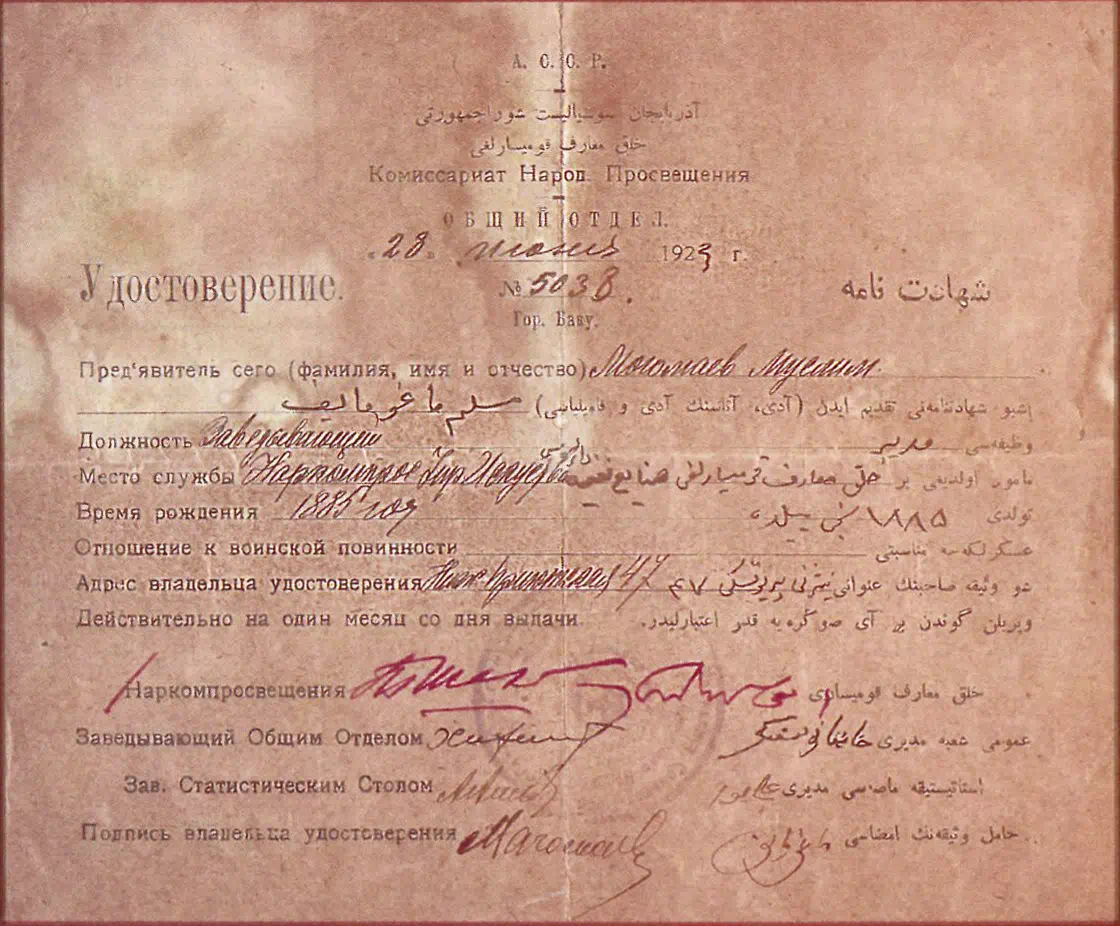 А. С. С. Р.
آذربایجان سوسیالیست شورا جمهورتی
خلق معارف قومیسارلغی
Комиссариат Народ. Просвещения
ОБЩИЙ ОТДЕЛ.
„28„ июня 1923 г.
Удостоверение. № 5038. شهادت نامه
Гор. Баку.
Пред'явитель сего (фамилия, имя и отчество) Магомаев Муслим
اشبو شهادتنامه‌نی تقدیم ایدن (آدی، آتاسنك آدی و فامیلیاسی) مسلم ماغومایف
Должность Заведывающий وظیفه‌سی مدیر
Место службы Наркомпрос مأمور اولدیغی یر خلق معارف قومیسارلغی صنایع نفیسه
Время рождения 1885 год تولدی ۱۸۸۵ نجی ییلده
Отношение к воинской повинности عسكرلكه مناسبتی
Адрес владельца удостоверения 47 شو وثیقه صاحبنك عنوانی ۴۷
Действительно на один месяц со дня выдачи. ویریلن گوندن بر آی صوڭره‌یه قدر اعتبارلیدر.
Наркомпросвещения خلق معارف قومیساری
Заведывающий Общим Отделом عمومی شعبه مدیری
Зав. Статистическим Столом استاتیستیقه ماصه‌سی مدیری
Подпись владельца удостоверения Магомаев حامل وثیقه‌نك امضاسی